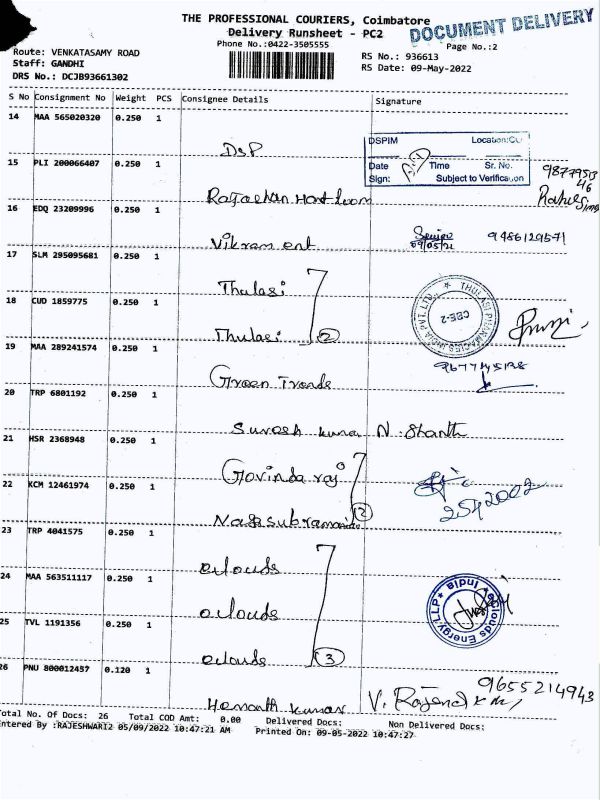 THE PROFESSIONAL COURIERS, Coimbatore
Delivery Runsheet - PC2
DOCUMENT DELIVERY
Phone No.:0422-3505555
Page No.:2
Route: VENKATASAMY ROAD
Staff: GANDHI
DRS No.: DCJB93661302
RS No.: 936613
RS Date: 09-May-2022
S No Consignment No Weight PCS Consignee Details Signature
14 MAA 565020320 0.250 1
DSP
DSPIM Location:CU
Date Time Sr. No.
Sign: Subject to Verification
15 PLI 200066407 0.250 1
16 EDQ 23209996 0.250 1
Vikram ent
09/05/22 9486129571
17 SLM 295095681 0.250 1
Thulasi
18 CUD 1859775 0.250 1
Thulasi 2
THULASI PHARMACIES INDIA PVT. LTD., ★ CBE-2
19 MAA 289241574 0.250 1
Green Trends
20 TRP 6801192 0.250 1
Suresh kumar N. Shanth
21 HSR 2368948 0.250 1
Govindaraj
22 KCM 12461974 0.250 1
2
2542002
23 TRP 4041575 0.250 1
eclouds
24 MAA 563511117 0.250 1
eclouds
25 TVL 1191356 0.250 1
eclouds 3
eClouds Energy LLP ★ India
26 PNU 800012457 0.120 1
Hemanth kumar V. Rajendkm
9655214943
Total No. Of Docs: 26 Total COD Amt: 0.00 Delivered Docs: Non Delivered Docs:
Entered By :RAJESHWARI2 05/09/2022 10:47:21 AM Printed On: 09-05-2022 10:47:27